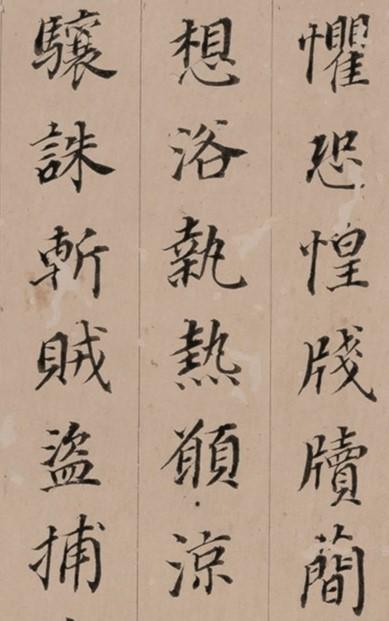 懼恐惶牋牘簡
想浴執熱願涼
驤誅斬賊盜捕